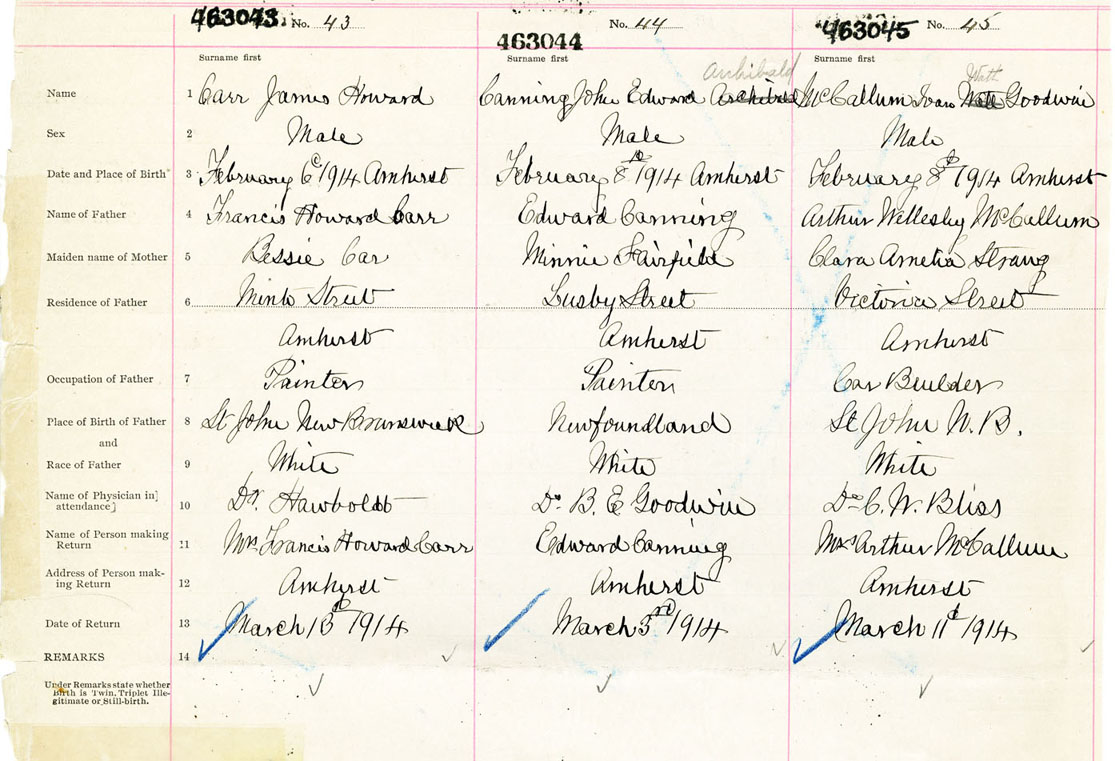 463043 No. 43 463044 No. 44 463045 No. 45
Surname first Surname first Surname first
Archibald Watt
Name 1 Carr James Howard Canning John Edward Archibald McCallum Ivan Goodwin
Sex 2 Male Male Male
Date and Place of Birth 3 February 6th 1914 Amherst February 8th 1914 Amherst February 8th 1914 Amherst
Name of Father 4 Francis Howard Carr Edward Canning Arthur Wellesley McCallum
Maiden name of Mother 5 Bessie Car Minnie Fairfield Clara Amelia Strang
Residence of Father 6 Minto Street Lusby Street Victoria Street
Amherst Amherst Amherst
Occupation of Father 7 Painter Painter Car Builder
Place of Birth of Father 8 St John New Brunswick Newfoundland St John N. B.
and
Race of Father 9 White White White
Name of Physician in] attendance] 10 Dr. Hawboldt Dr B. E Goodwin Dr C. W. Bliss
Name of Person making Return 11 Mrs Francis Howard Carr Edward Canning Mrs Arthur McCallum
Address of Person mak-ing Return 12 Amherst Amherst Amherst
Date of Return 13 March 13th 1914 March 3rd 1914 March 11th 1914
REMARKS 14
Under Remarks state whether
Birth is Twin, Triplet Ille-
gitimate or Still-birth.